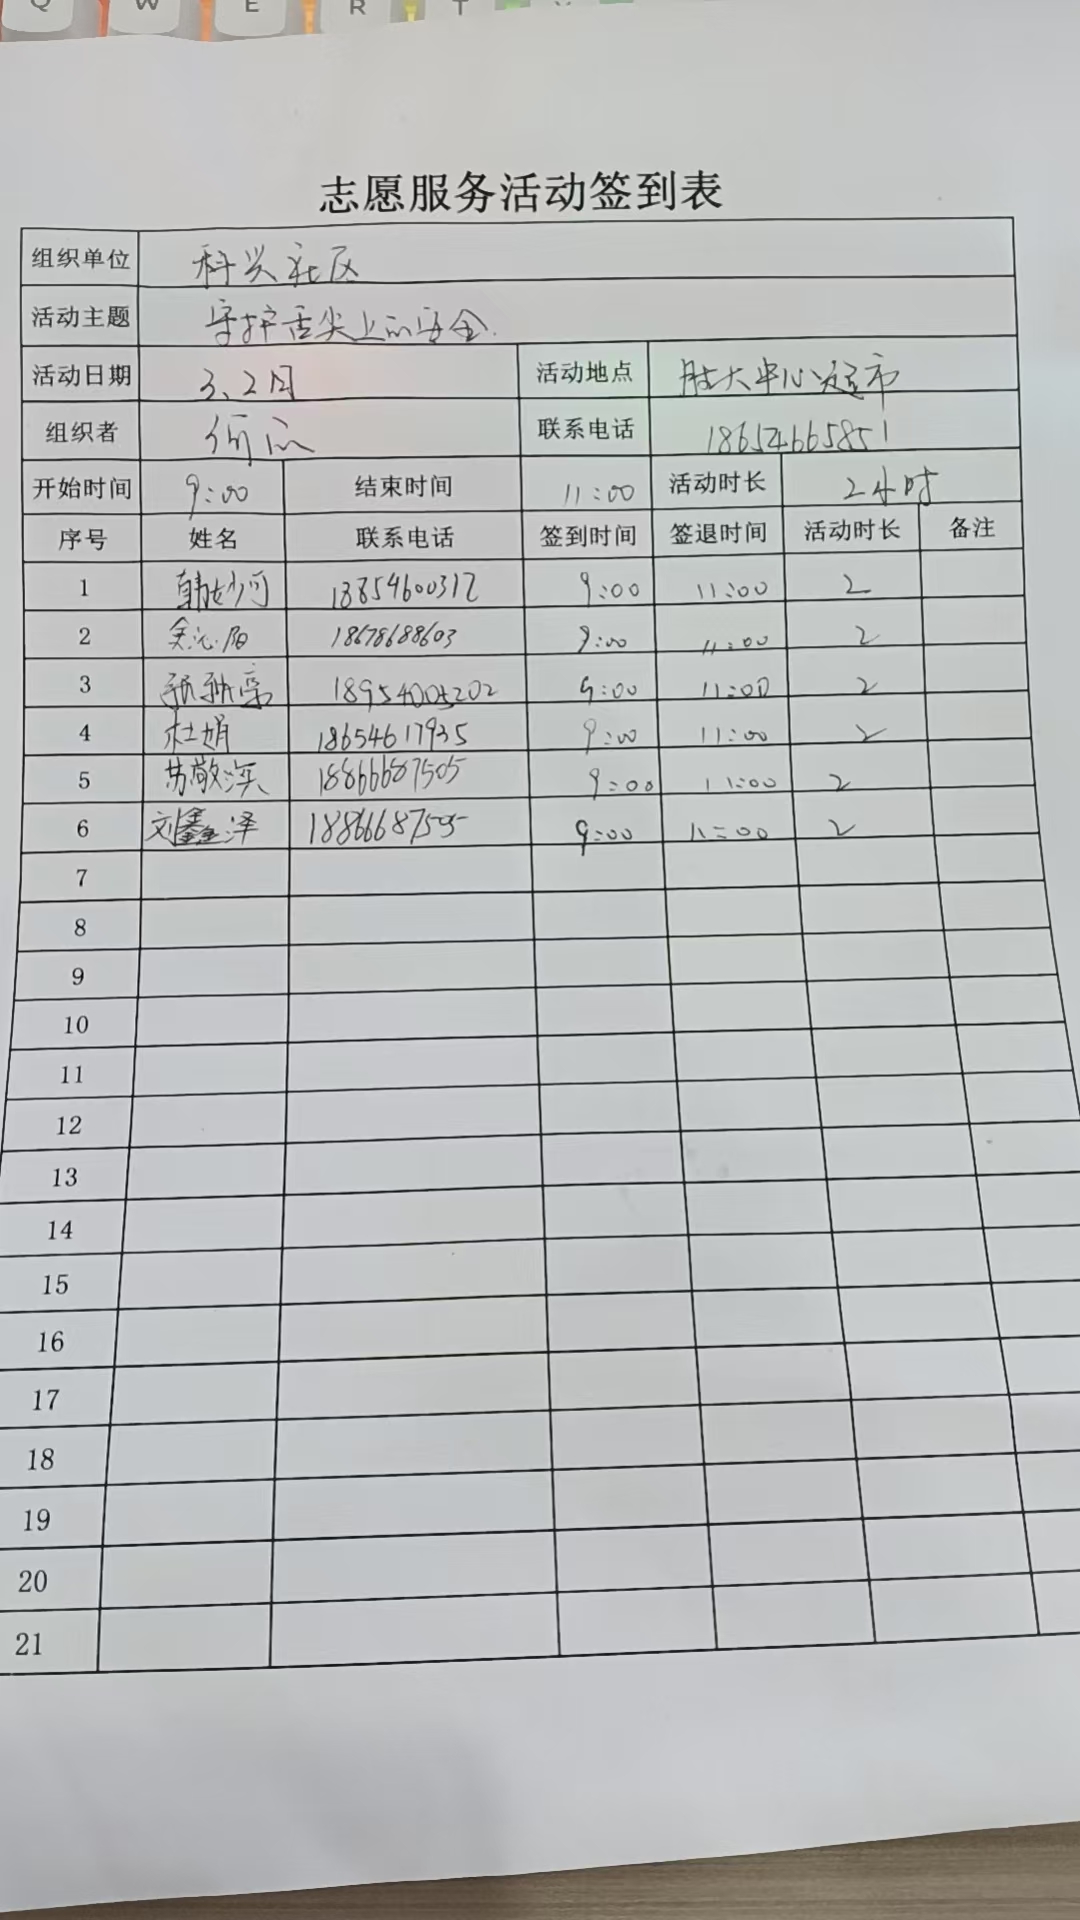 Q W E R T Y
志愿服务活动签到表
组织单位 科兴社区
活动主题 守护舌尖上的安全.
活动日期 3、2日 活动地点 胜大中心超市
组织者 联系电话 186524665851
开始时间 9:00 结束时间 11:00 活动时长 2小时
序号 姓名 联系电话 签到时间 签退时间 活动时长 备注
1 韩妙可 18854600312 9:00 11:00 2
2 18678688603 9:00 11:00 2
3 18954005202 9:00 11:00 2
4 杜娟 18654617935 9:00 11:00 2
5 苏敬深 18866687505 9:00 11:00 2
6 刘鑫泽 18866687505 9:00 11:00 2
7
8
9
10
11
12
13
14
15
16
17
18
19
20
21